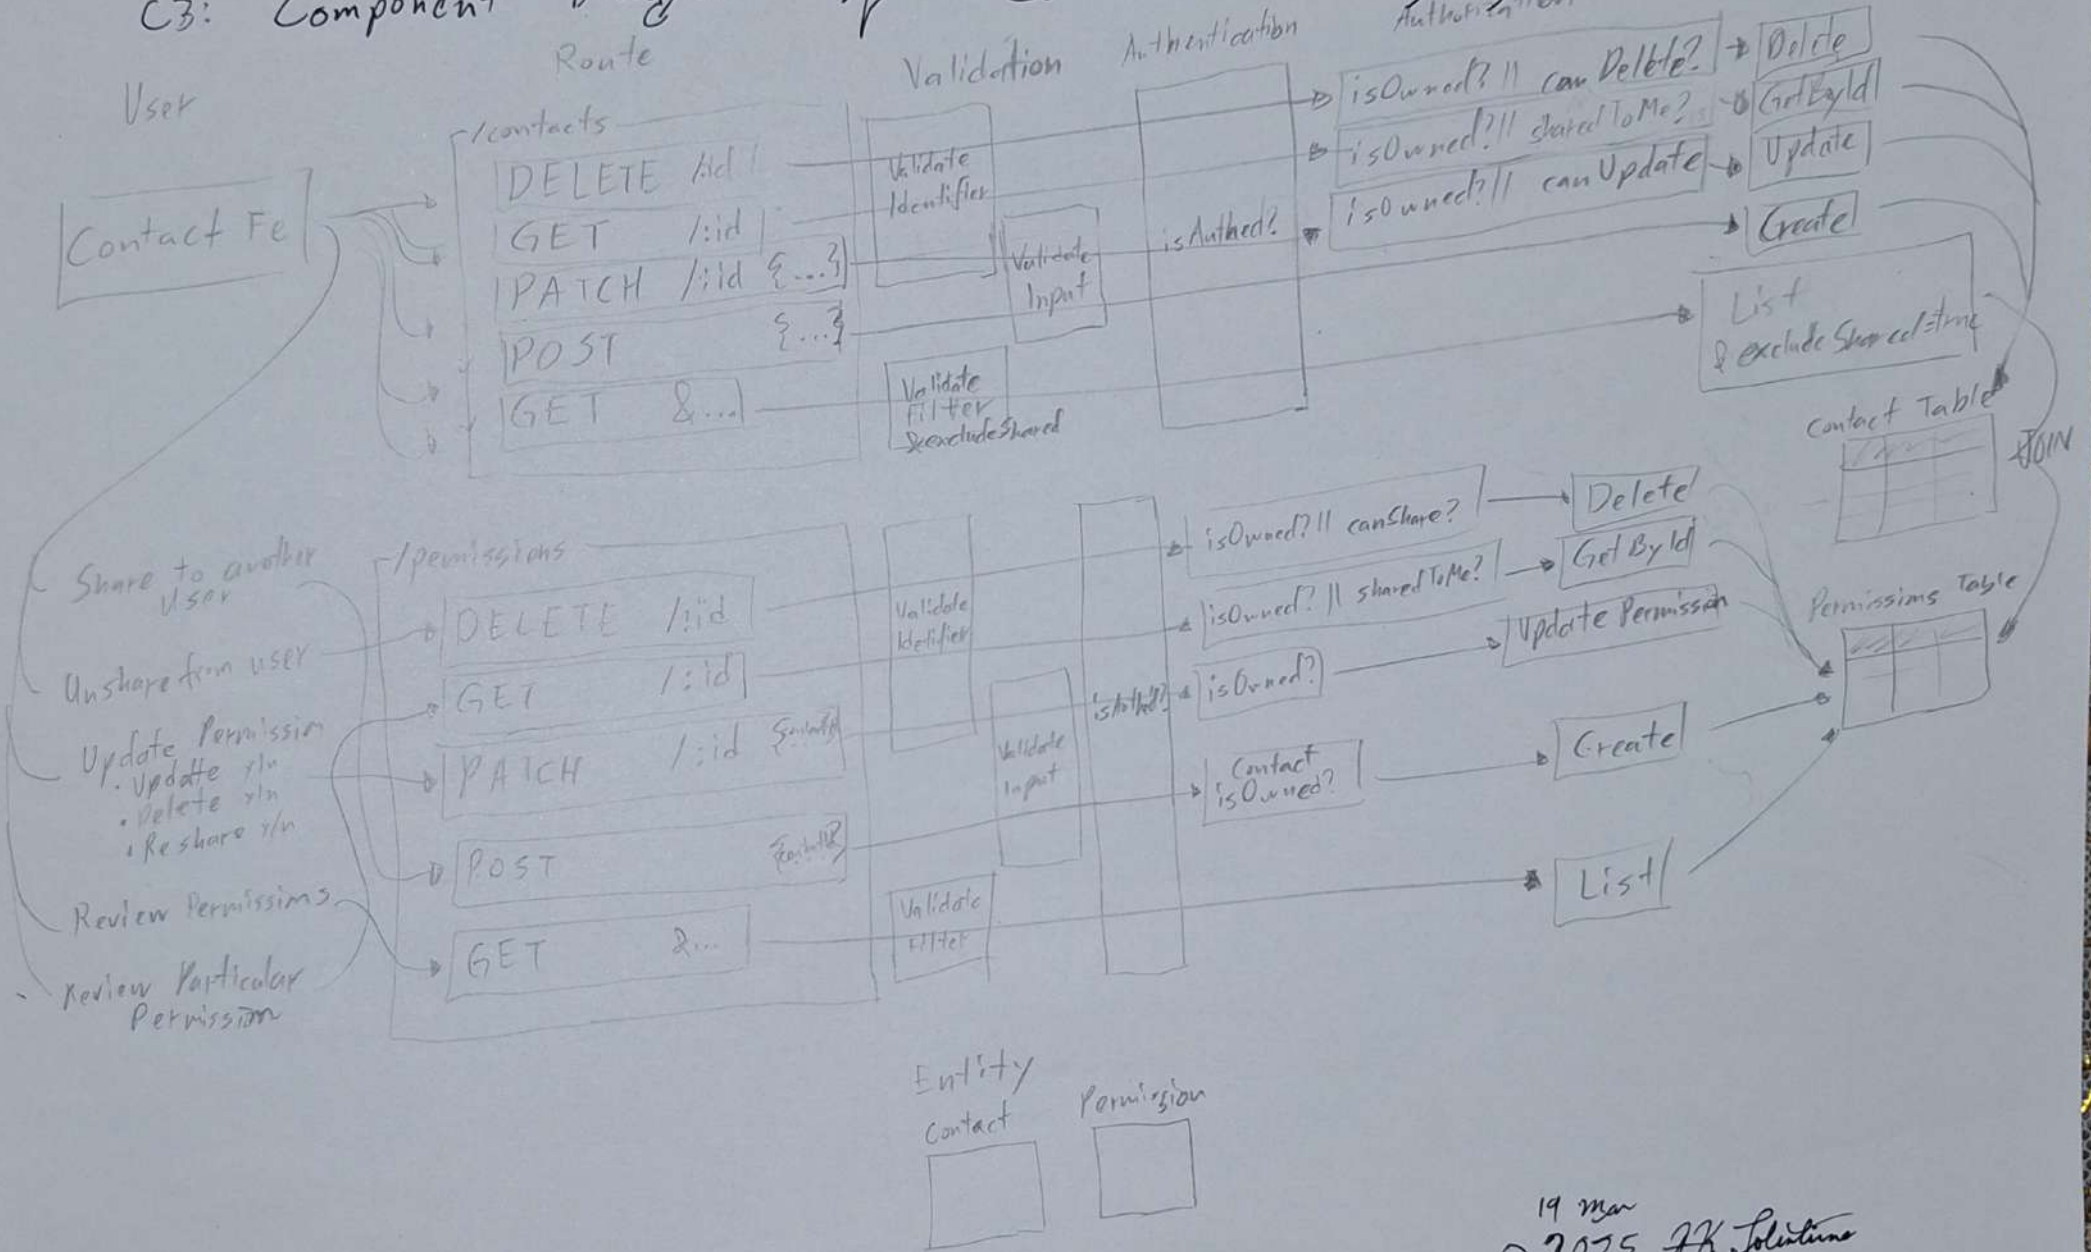 C3: Component
User
Route
Validation
Authentication
Contact Fe
/contacts
DELETE /:id
GET /:id
PATCH /:id {...}
POST {...}
GET &...
Validate
Identifier
Validate
Input
Validate
Filter
&excludeShared
isAuthed?
isOwned? || can Delete?
isOwned? || sharedToMe?
isOwned? || can Update
Delete
GetById
Update
Create
List
& excludeShared=true
Contact Table
JOIN
Share to another
User
Unshare from user
Update Permission
• Update y/n
• Delete y/n
• Reshare y/n
Review Permissions
Review Particular
Permission
/permissions
DELETE /:id
GET /:id
PATCH /:id
POST
GET &...
Validate
Idetifier
Validate
Input
Validate
Filter
isAuthed?
isOwned? || canShare?
isOwned? || sharedToMe?
isOwned?
Contact
isOwned?
Delete
GetById
Update Permission
Create
List
Permissions Table
Entity
Contact
Permission
19 Mar
2025